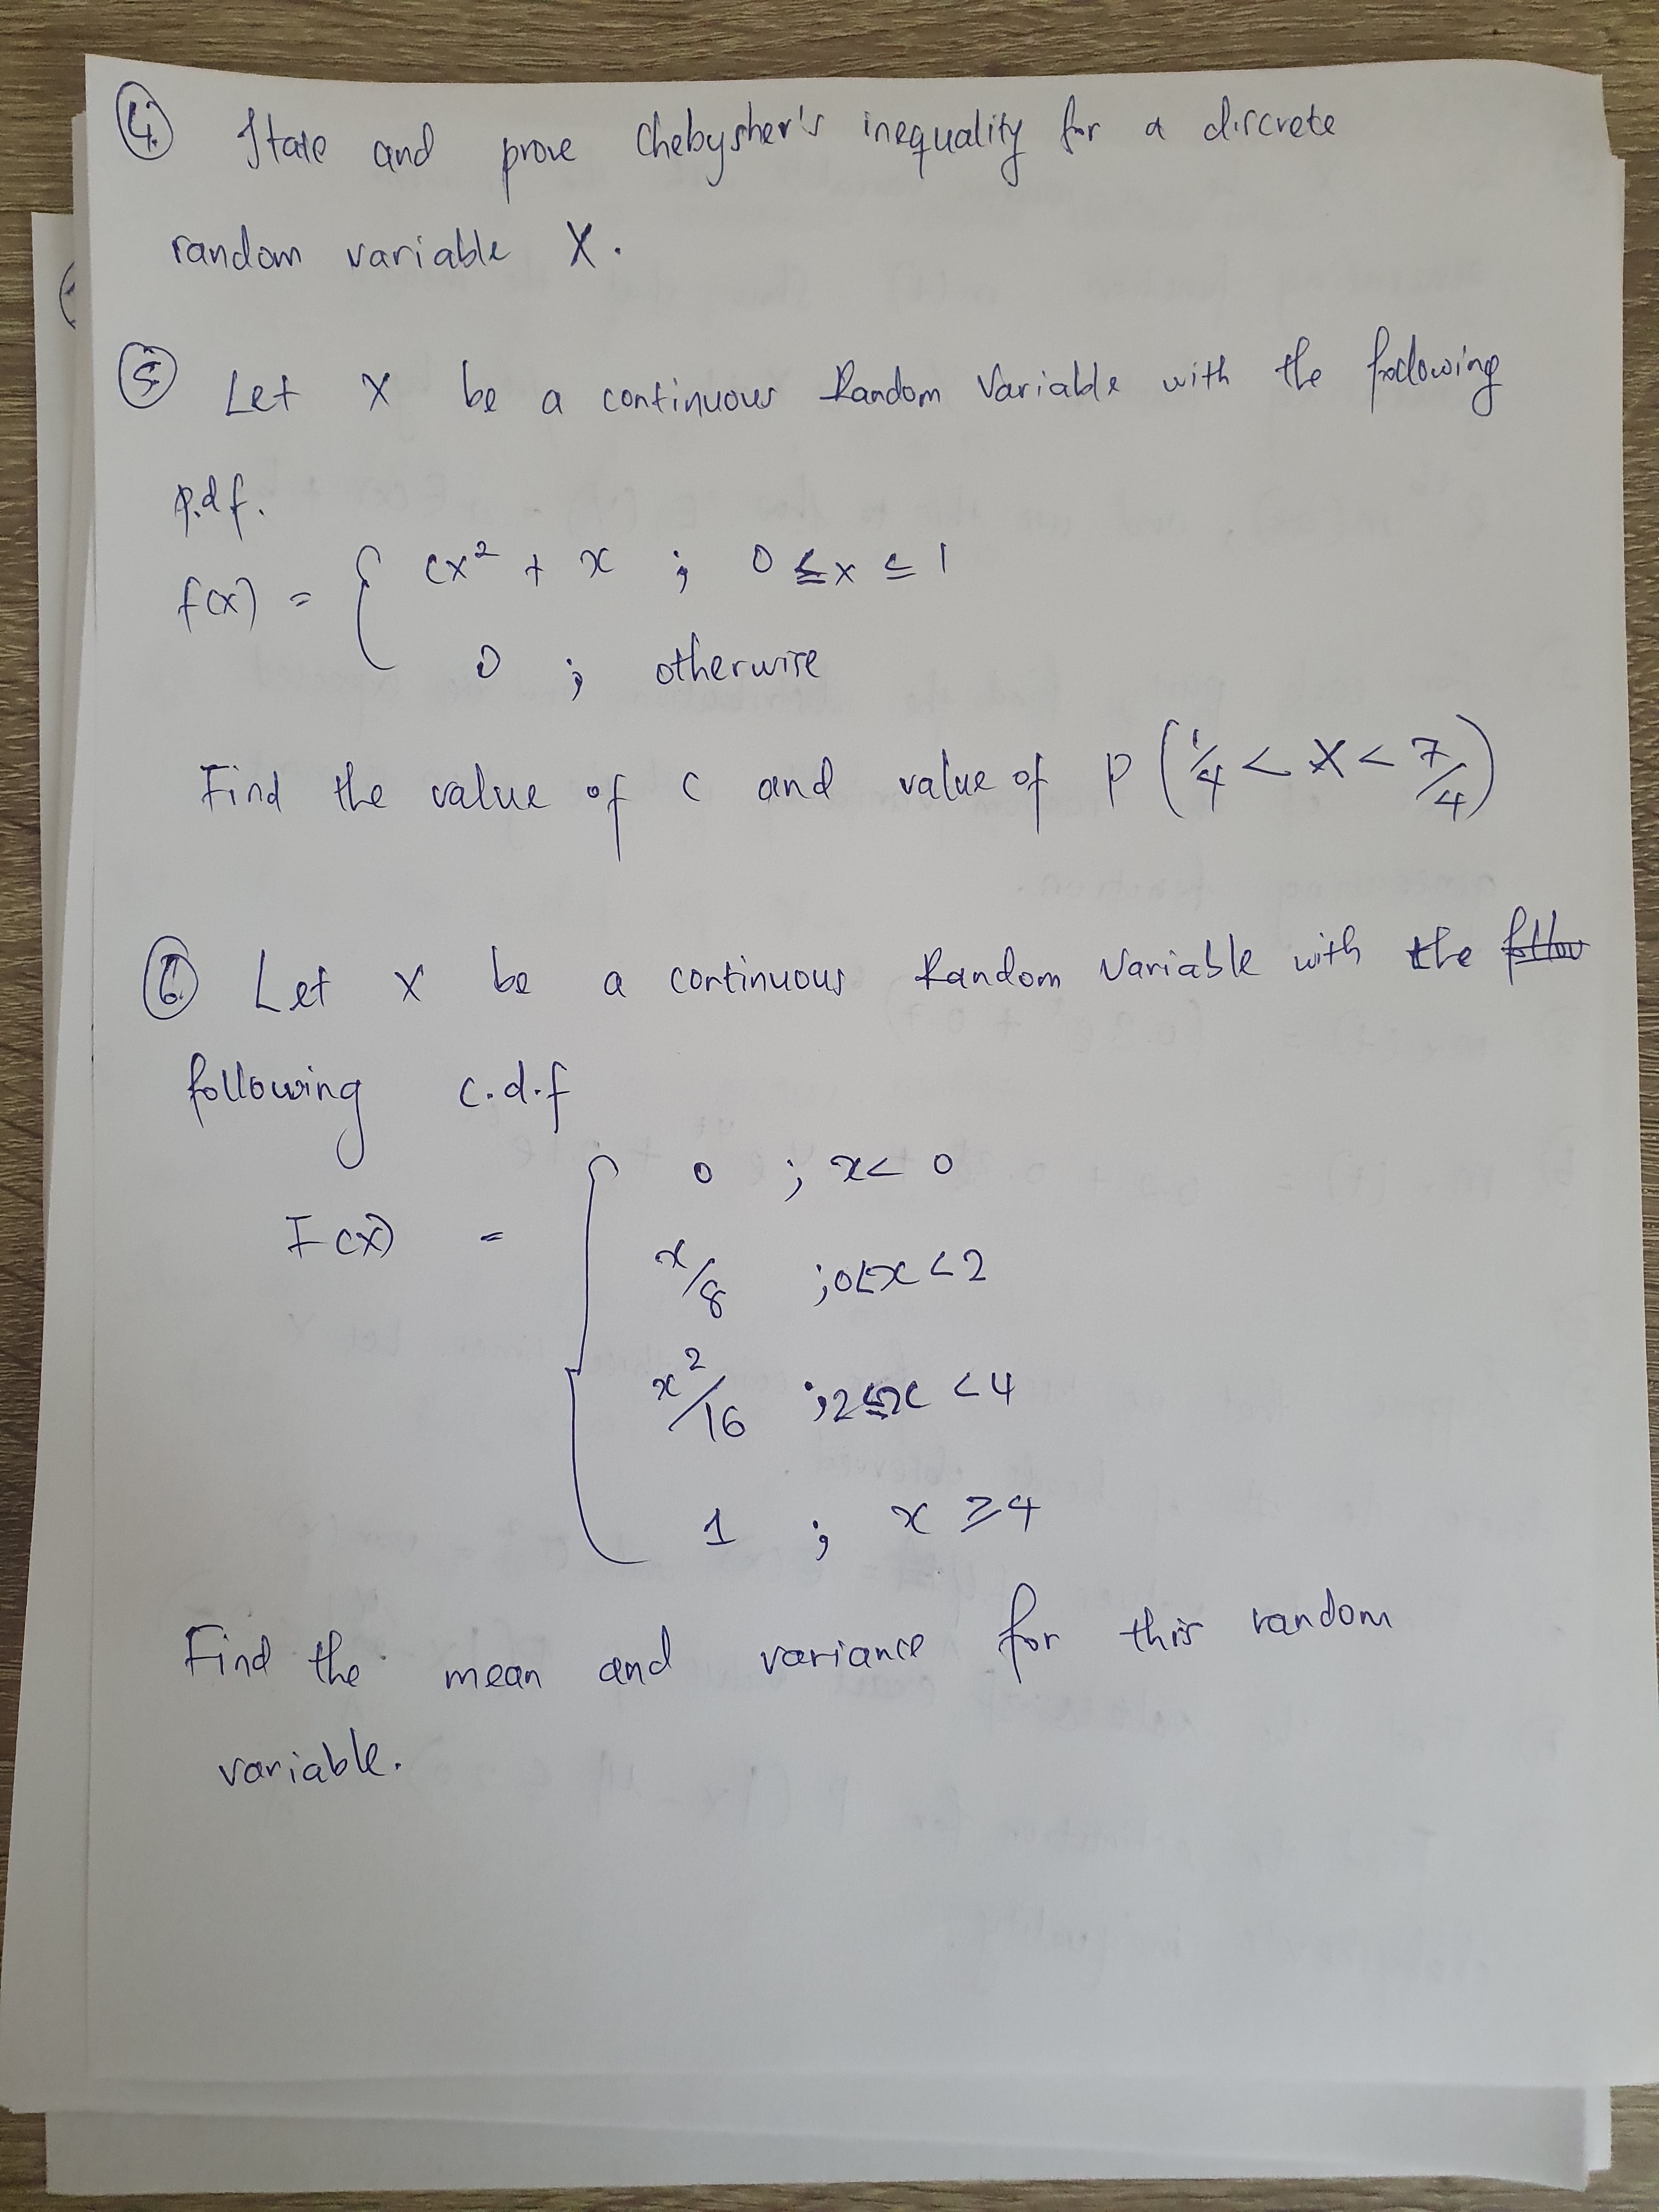 4. State and prove Chebysher's inequality for a discrete
random variable X.
5. Let X be a continuous Random Variable with the following
p.d f.
f(x) = { cx² + x ; 0 ≤ x ≤ 1
0 ; otherwise
Find the value of c and value of P (1/4 < X < 7/4)
6. Let X be a continuous Random Variable with the follow
following c.d.f
F(x) = { 0 ; x < 0
x/8 ; 0≤x < 2
x²/16 ; 2≤x < 4
1 ; x ≥ 4
Find the mean and variance for this random
variable.